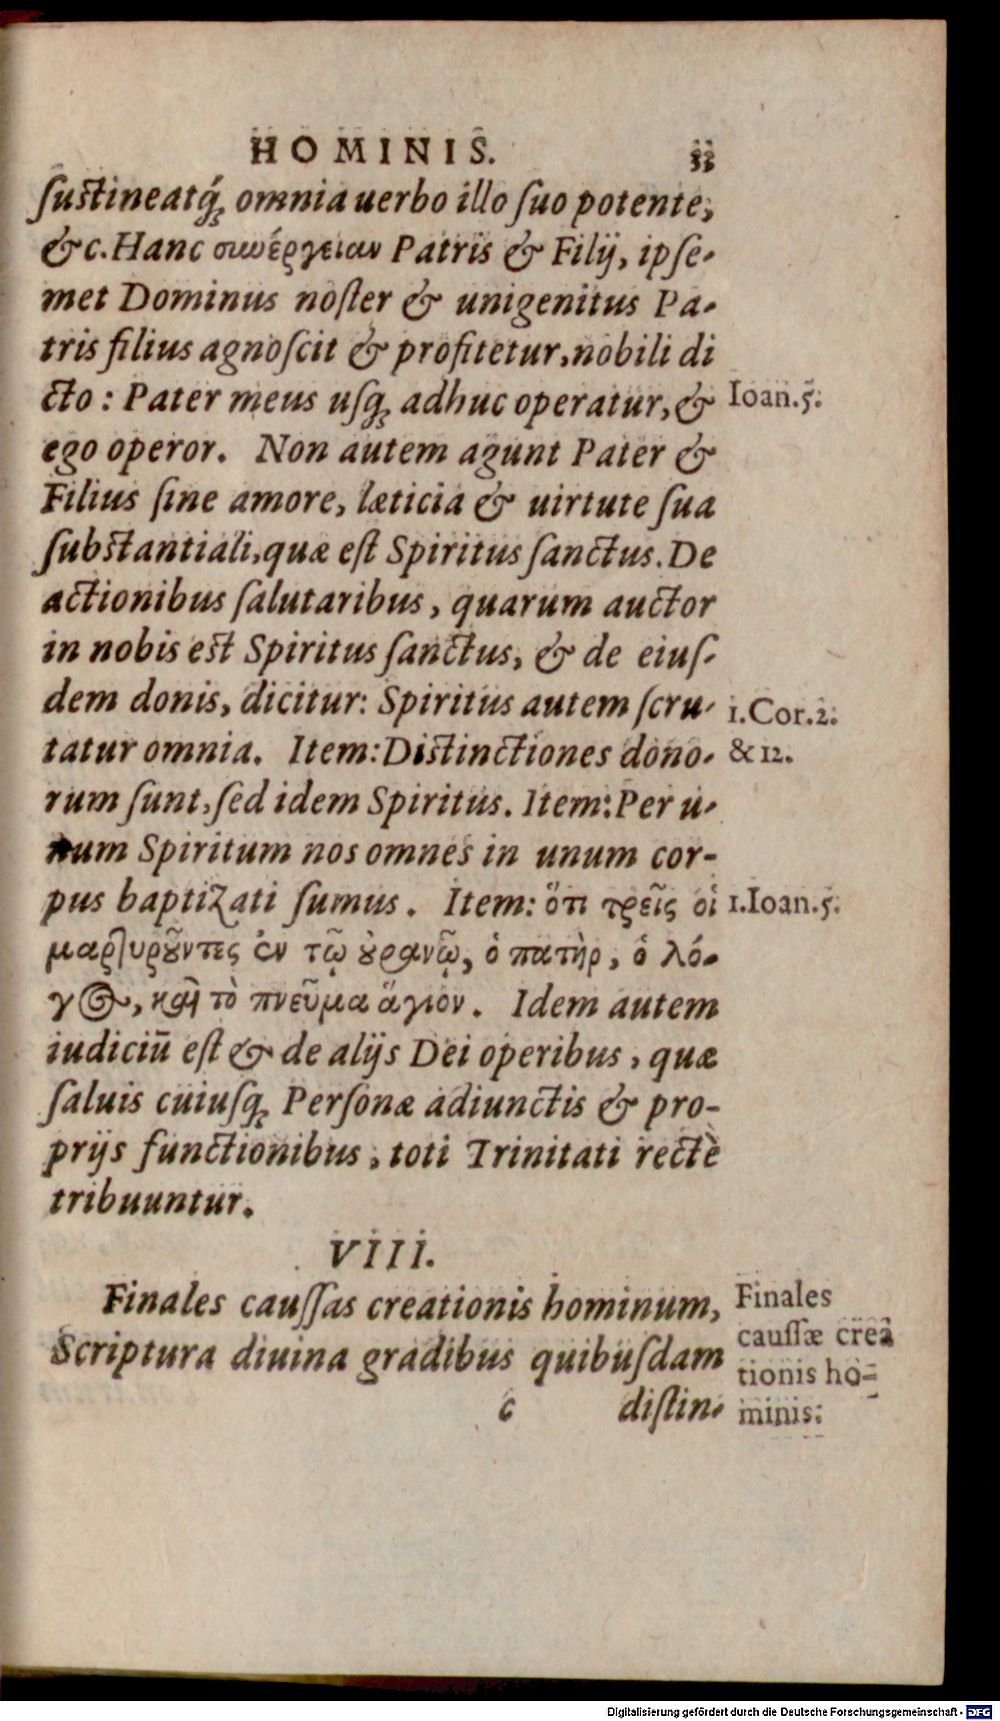 HOMINIS. 33
ſuſtineatq́ꝫ omnia uerbo illo ſuo potente,
&c. Hanc συνέργειαν Patris & Filij, ipſe-
met Dominus noſter & unigenitus Pa-
tris filius agnoſcit & profitetur, nobili di
cto: Pater meus uſqꝫ adhuc operatur, & Ioan. 5.
ego operor. Non autem agunt Pater &
Filius ſine amore, læticia & uirtute ſua
ſubſtantiali, quæ eſt Spiritus ſanctus. De
actionibus ſalutaribus, quarum auctor
in nobis eſt Spiritus ſanctus, & de eiuſ-
dem donis, dicitur: Spiritus autem ſcru- 1. Cor. 2.
tatur omnia. Item: Diſtinctiones dono- & 12.
rum ſunt, ſed idem Spiritus. Item: Per u-
num Spiritum nos omnes in unum cor-
pus baptizati ſumus. Item: ὅτι τρεῖς οἱ 1. Ioan. 5.
μαρτυροῦντες ἐν τῷ οὐρανῷ, ὁ πατὴρ, ὁ λό-
γος, καὶ τὸ πνεῦμα ἅγιον. Idem autem
iudiciū eſt & de alijs Dei operibus, quæ
ſaluis cuiuſqꝫ Perſonæ adiunctis & pro-
prijs functionibus, toti Trinitati rectè
tribuuntur.
VIII.
Finales cauſſas creationis hominum, Finales
Scriptura diuina gradibus quibuſdam cauſſæ crea
tionis ho-
c diſtin- minis.
Digitalisierung gefördert durch die Deutsche Forschungsgemeinschaft - DFG